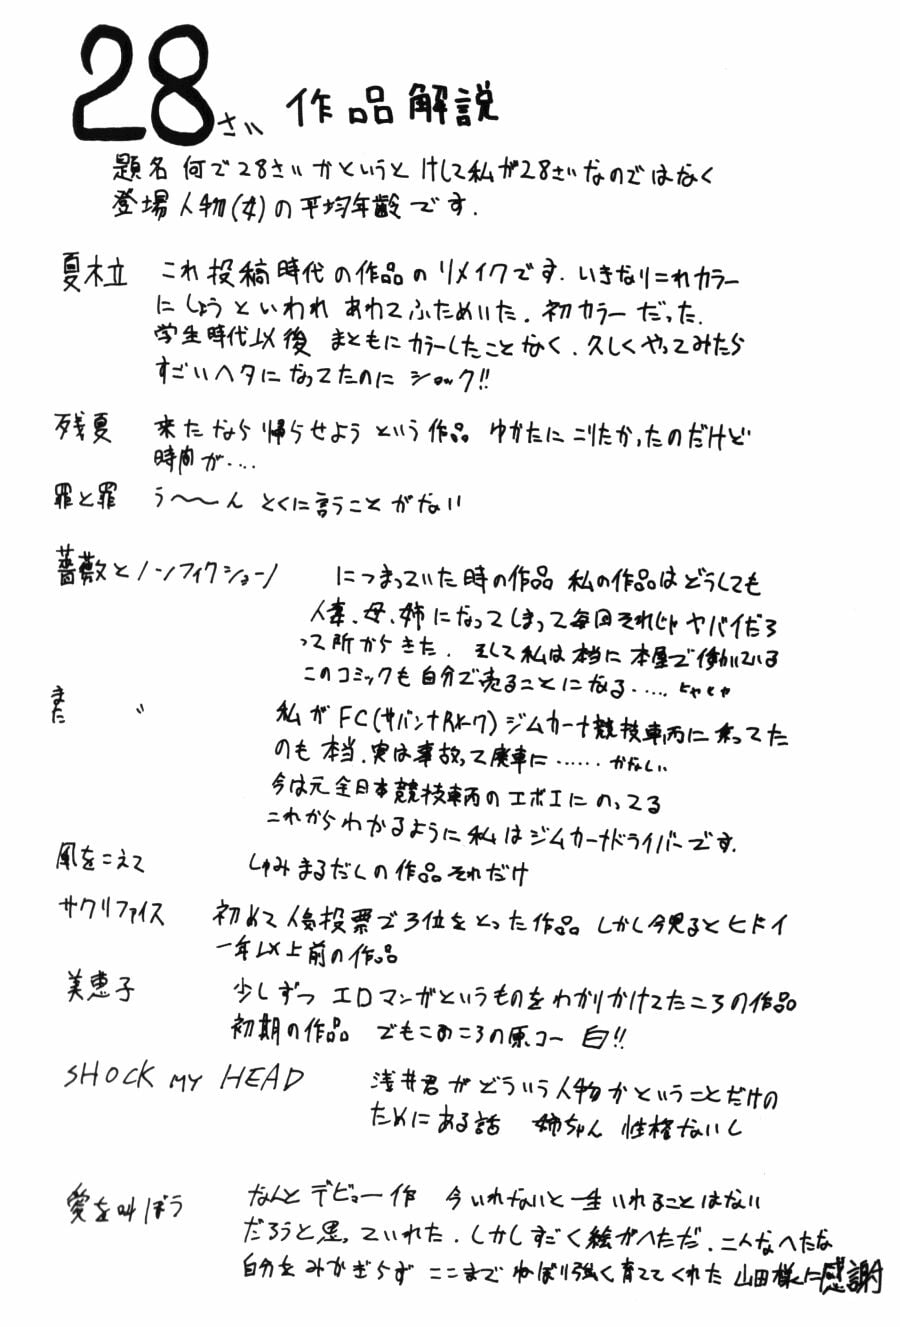 28さい 作品解説
題名 何で28さいかというと けして私が28さいなのではなく
登場人物(女)の平均年齢です.
夏木立 これ投稿時代の作品のリメイクです. いきなりこれカラー
にしようといわれ あわてふためいた. 初カラーだった.
学生時代以後 まともにカラーしたことなく. 久しくやってみたら
すごいヘタになってたのにショック!!
残夏 来たなら帰らせようという作品 ゆかたにこりたかったのだけど
時間が....
罪と罪 う〜〜ん とくに言うことがない
薔薇とノンフィクション につまっていた時の作品 私の作品はどうしても
人妻、母、姉になってしまって毎回それじゃヤバイだろ
って所からきた. そして私は本当に本屋で働いている
このコミックも自分で売ることになる..... とやとや
また 〃 私がFC(サバンナRX-7)ジムカーナ競技車両に乗ってた
のも本当. 実は事故って廃車に...... かなしい
今は元全日本競技車両のエボIにのってる
これからわかるように私はジムカーナドライバーです.
風をこえて しゅみまるだしの作品それだけ
サクリファイス 初めて人気投票で3位をとった作品 しかし今見るとヒドイ
一年以上前の作品
美恵子 少しずつ エロマンガというものをわかりかけてたころの作品
初期の作品 でもこのころの原コー 白!!
SHOCK MY HEAD 浅井君がどういう人物かということだけの
ためにある話 姉ちゃん 性格ないし
愛を叫ぼう なんとデビュー作 今いれないと一生いれることはない
だろうと思っていれた. しかしすごく絵がへただ. こんなへたな
自分をみかぎらず ここまでねばり強く育ててくれた 山田様に感謝